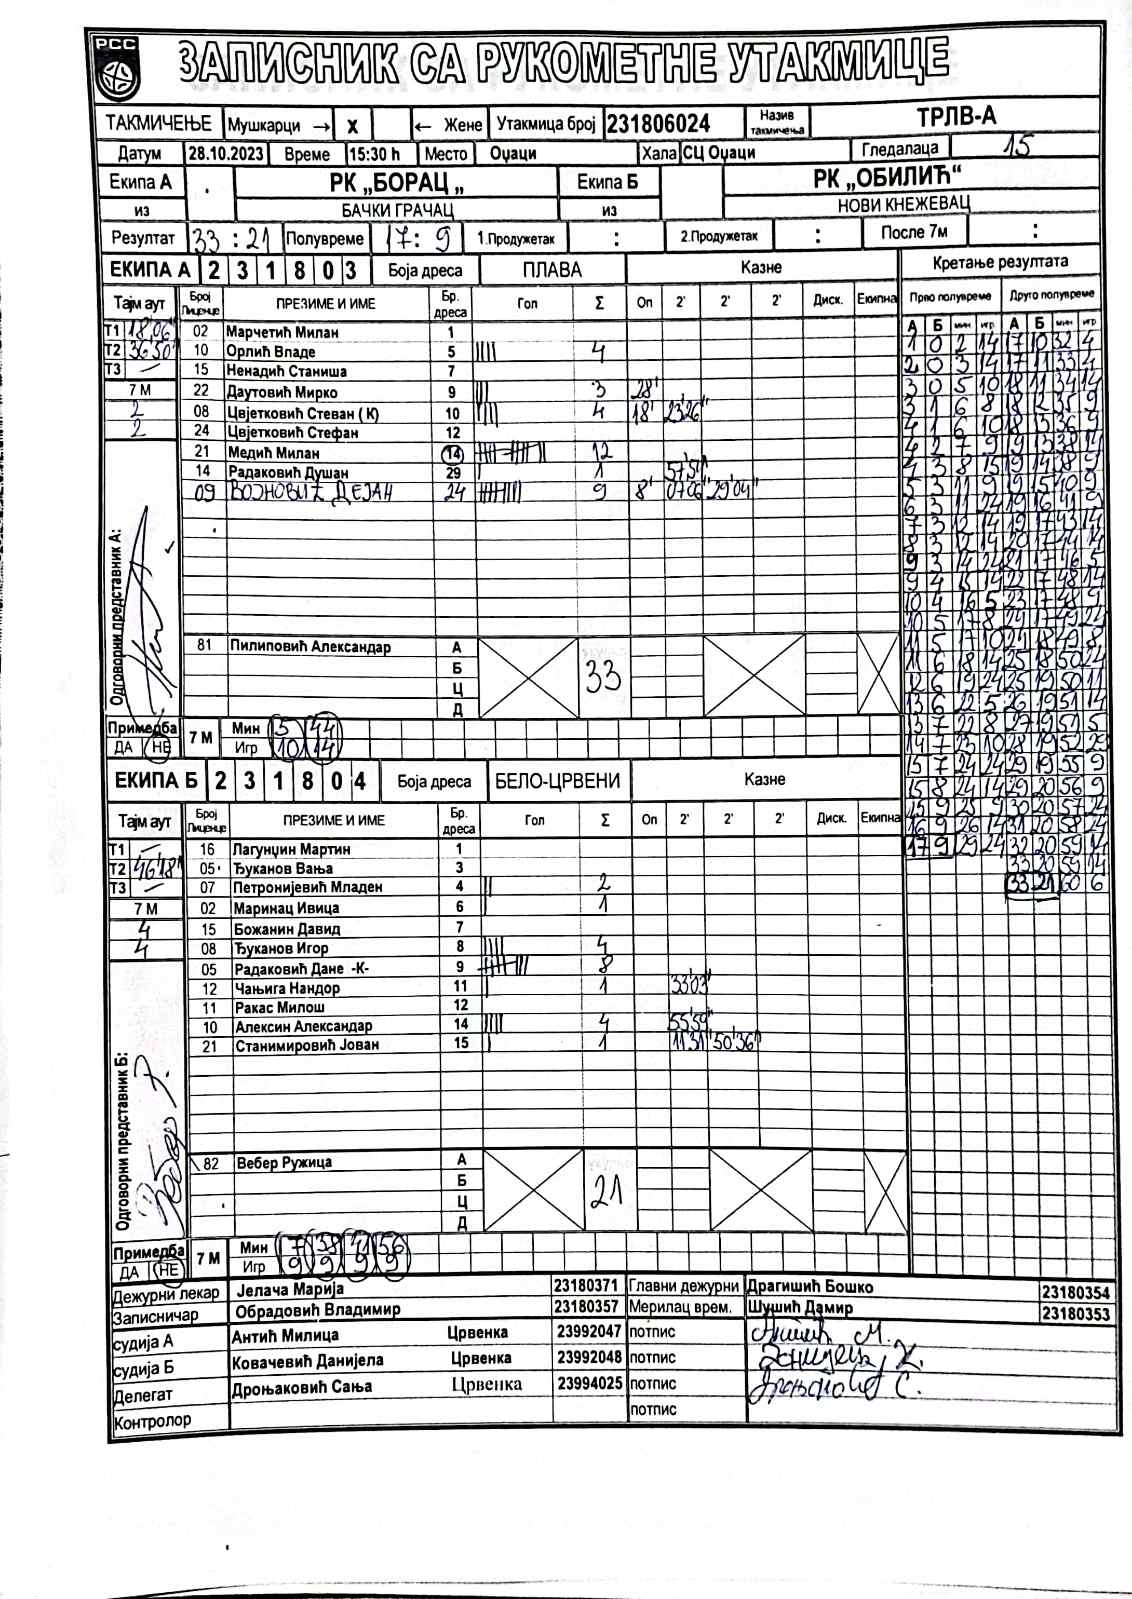 РСС
ЗАПИСНИК СА РУКОМЕТНЕ УТАКМИЦЕ
ТАКМИЧЕЊЕ Мушкарци → X ← Жене Утакмица број 231806024 Назив такмичења ТРЛВ-А
Датум 28.10.2023 Време 15:30 h Место Оџаци Хала СЦ Оџаци Гледалаца 15
Екипа А РК „БОРАЦ „ Екипа Б РК „ОБИЛИЋ“
из БАЧКИ ГРАЧАЦ из НОВИ КНЕЖЕВАЦ
Резултат 33 : 21 Полувреме 17 : 9 1.Продужетак : 2.Продужетак : После 7м :
ЕКИПА А 2 3 1 8 0 3 Боја дреса ПЛАВА Казне Кретање резултата
Тајм аут Број Лиценце ПРЕЗИМЕ И ИМЕ Бр. дреса Гол Σ Оп 2' 2' 2' Диск. Екипна Прво полувреме Друго полувреме
А Б мин игр А Б мин игр
Т1 18'06" 02 Марчетић Милан 1
Т2 36'50" 10 Орлић Владе 5 |||| 4
Т3 — 15 Ненадић Станиша 7
7 М 22 Даутовић Мирко 9 ||| 3 28'
2 08 Цвјетковић Стеван ( К) 10 |||| 4 18' 23'26"
2 24 Цвјетковић Стефан 12
21 Медић Милан 14 12
14 Радаковић Душан 29 | 1 57'51"
09 ВОЈНОВИЋ ДЕЈАН 24 9 8' 07'06" 29'04"
Одговорни представник А:
81 Пилиповић Александар А
Б
Ц
Д
33
Примедба ДА НЕ 7 М Мин 5 44
Игр 10 14
1 0 2 14 17 10 32 4
2 0 3 14 17 11 33 4
3 0 5 10 18 11 34 14
3 1 6 8 18 12 35 9
4 1 6 10 18 13 36 9
4 2 7 9 19 13 38 14
4 3 8 15 19 14 38 9
5 3 11 9 19 15 40 9
6 3 11 24 19 16 41 9
7 3 12 14 19 17 43 14
8 3 12 14 20 17 44 14
9 3 14 24 21 17 46 5
9 4 15 14 22 17 48 14
10 4 16 5 23 17 48 9
10 5 17 8 24 17 49 24
11 5 17 10 24 18 49 8
11 6 18 14 25 18 50 24
12 6 19 24 25 19 50 11
13 6 22 5 26 19 51 14
13 7 22 8 27 19 51 5
14 7 23 10 28 19 52 29
15 7 24 24 29 19 55 9
15 8 24 14 29 20 56 9
15 9 25 9 30 20 57 24
16 9 26 14 31 20 58 24
17 9 29 24 32 20 59 14
33 20 59 14
33 21 60 6
ЕКИПА Б 2 3 1 8 0 4 Боја дреса БЕЛО-ЦРВЕНИ Казне
Тајм аут Број Лиценце ПРЕЗИМЕ И ИМЕ Бр. дреса Гол Σ Оп 2' 2' 2' Диск. Екипна
Т1 — 16 Лагунџин Мартин 1
Т2 46'18" 05 Ђуканов Вања 3
Т3 — 07 Петронијевић Младен 4 || 2
7 М 02 Маринац Ивица 6 | 1
4 15 Божанин Давид 7
4 08 Ђуканов Игор 8 |||| 4
05 Радаковић Дане -К- 9 8
12 Чањига Нандор 11 | 1 33'03"
11 Ракас Милош 12
10 Алексин Александар 14 |||| 4 55'59"
21 Станимировић Јован 15 | 1 11'31" 50'36"
Одговорни представник Б:
82 Вебер Ружица А
Б
Ц
Д
21
Примедба ДА НЕ 7 М Мин 7 38 41 56
Игр 9 9 9 9
Дежурни лекар Јелача Марија 23180371 Главни дежурни Драгишић Бошко 23180354
Записничар Обрадовић Владимир 23180357 Мерилац врем. Шушић Дамир 23180353
судија А Антић Милица Црвенка 23992047 потпис
судија Б Ковачевић Данијела Црвенка 23992048 потпис
Делегат Дроњаковић Сања Црвенка 23994025 потпис
Контролор потпис